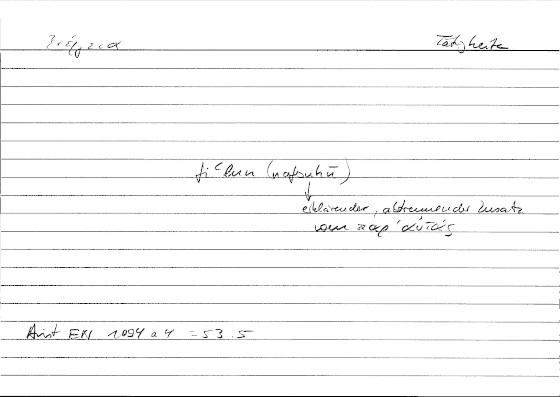 ἐνέργεια Tätigkeit
fiʿlun (nafsuhū)
↓
erklärender, abtrennender Zusatz
vom παρ' αὐτάς
Arist EN 1094 a 4 = 53.5